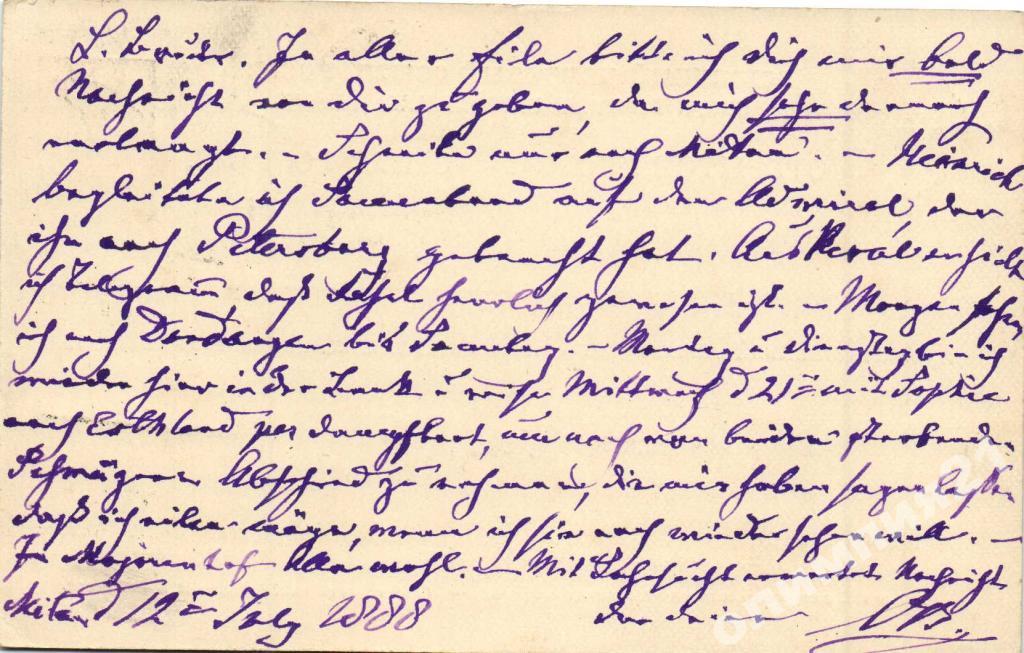 L. Bruder. In aller Eile bitte ich Dich mir bald
Nachricht von Dir zu geben, da mich sehr darnach
verlangt. – Schreibe nur nach Mitau. – Heinrich
begleitete ich Sonnabend auf den Admiral, der
ihn nach Petersburg gebracht hat. Aus Reval erhielt
ich Telegramm daß Fahrt herrlich gewesen ist. – Morgen fahre
ich nach Dondangen bis Sonntag. – Montag u Dienstag bin ich
wieder hier in der Bank u reise Mittwoch d 21 mit Sophie
nach Esthland per Dampfboot, um noch von beiden sterbenden
Schwägern Abschied zu nehmen, die mir haben sagen lassen
daß ich eilen möge, wenn ich sie noch wiedersehen will. –
In Majorenhof Alle wohl. – Mit Sehnsucht erwartet Nachricht
Mitau d 12 July 1888 der deine
олимпих21